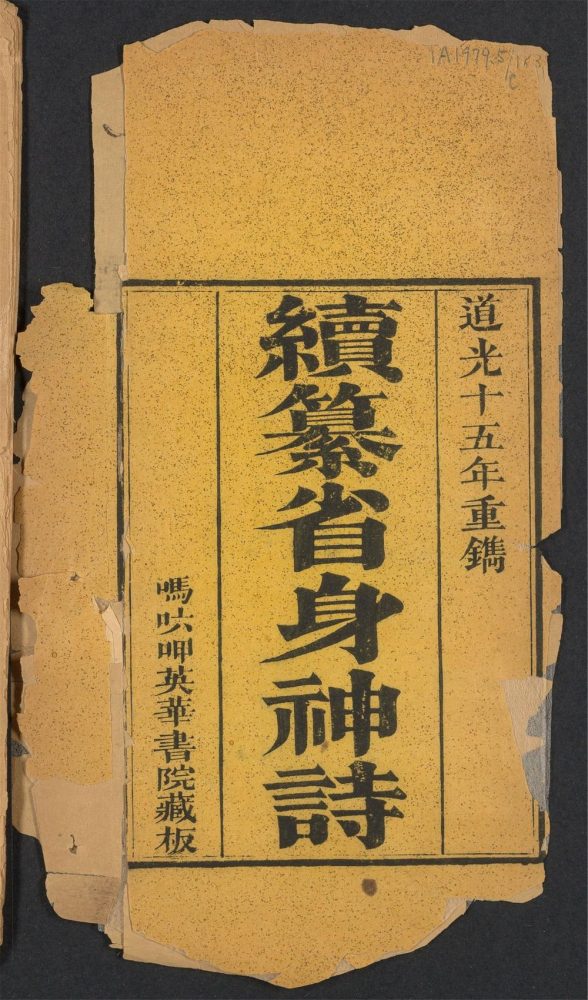 1A1979.5/183
C
道光十五年重鐫
續纂省身神詩
嗎㕸呷英華書院藏板